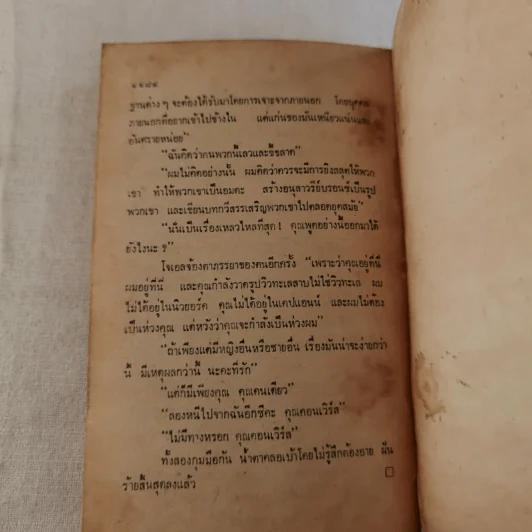 ๑๑๘๔
ฐานต่าง ๆ จะต้องได้รับมาโดยการเจาะจากภายนอก โดยบุคคล
ภายนอกที่อยากเข้าไปข้างใน แต่แก่นของมันเหนียวแน่นและ
อันตรายหน่อย”
“ฉันคิดว่าคนพวกนี้เลวและขี้ขลาด”
“ผมไม่คิดอย่างนั้น ผมคิดว่าควรจะมีการยิงสลุตให้พวก
เขา ทำให้พวกเขาเป็นอมตะ สร้างอนุสาวรีย์บรอนซ์เป็นรูป
พวกเขา และเขียนบทกวีสรรเสริญพวกเขาไปตลอดยุคสมัย”
“นั่นเป็นเรื่องเหลวไหลที่สุด! คุณพูดอย่างนี้ออกมาได้
ยังไงนะ ?”
โจเอลจ้องตาภรรยาของตนอีกครั้ง “เพราะว่าคุณอยู่ที่นี่
ผมอยู่ที่นี่ และคุณกำลังวาดรูปวิวทะเลสาบไม่ใช่วิวทะเล ผม
ไม่ได้อยู่ในนิวยอร์ค คุณไม่ได้อยู่ในเคปแอนน์ และผมไม่ต้อง
เป็นห่วงคุณ แต่หวังว่าคุณจะกำลังเป็นห่วงผม”
“ถ้าเพียงแต่มีหญิงอื่นหรือชายอื่น เรื่องมันน่าจะง่ายกว่า
นี้ มีเหตุผลกว่านี้ นะคะที่รัก”
“แต่ก็มีเพียงคุณ คุณคนเดียว”
“ลองหนีไปจากฉันอีกซีคะ คุณคอนเวิร์ส”
“ไม่มีทางหรอก คุณคอนเวิร์ส”
ทั้งสองกุมมือกัน น้ำตาคลอเบ้าโดยไม่รู้สึกต้องอาย ฝัน
ร้ายสิ้นสุดลงแล้ว